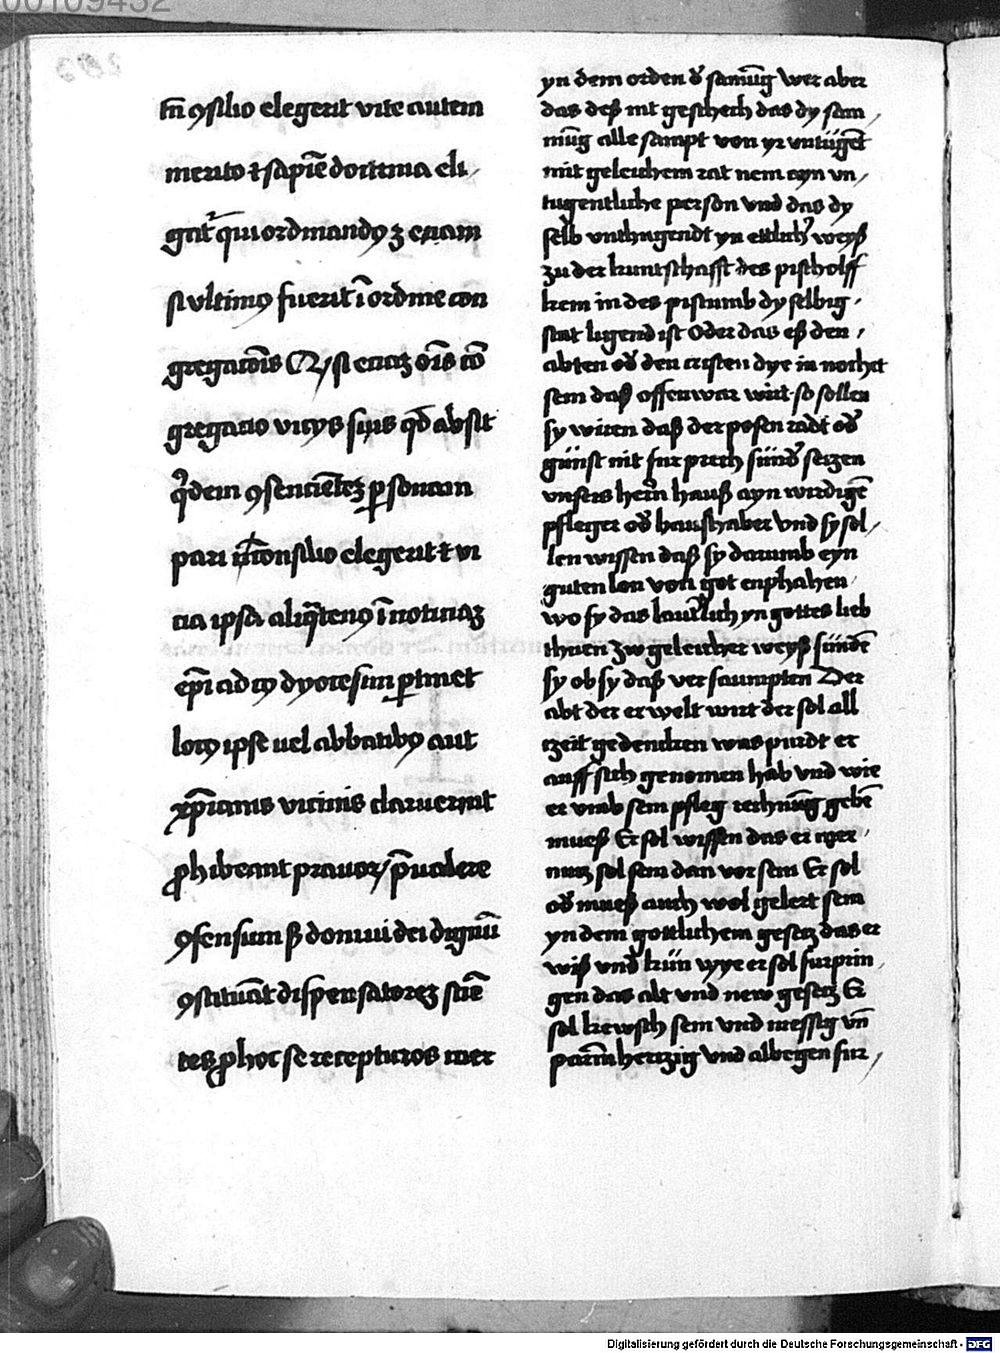 00109432
203
tm̄ ꝯsilio elegerit vite autem
merito ⁊ sapīe doctrina eli
gat᷑ qui ordinandꝰ ꝫ etiam
si vltimꝰ fuerit ī ordine con
gregatōis Qꝫ si etiaꝫ oīs cō
gregatio vicijs suis qd̄ absit
qͥdem ꝯsencientēꝫ ꝑsonam
pari ꝯsilio elegerit ⁊ vi
cia ipsa aliqͣtenꝰ ī noticiaꝫ
ep̄i ad cꝰ dyocesim ꝑtinet
locꝰ ipse uel abbatibꝰ aut
xp̄ianis vicinis claruerint
ꝓhibeant prauoꝝ p̄ualere
ꝯsensum sꝫ domui dei dignū
ꝯstituāt dispensatoreꝫ scīē
tes ꝓ hoc se recepturos mer
yn dem orden d᷑ samūg wer aber
das deß nit geschech das dy sam
mūg alle sampt von yr vntügēt
mit geleichem rat nem ayn vn
tugentliche person vnd das dy
selb vnthugendt yn etlichᷣ weyß
zu der kuntschafft des pischolff
kem in des pistumb dy selbig
stat ligend ist Oder das eß den
abten od᷑ den cristen dye in nochet
sein daß offenwar wirt so sollen
sy wiren daß der posen radt od᷑
günst nit fur prech sūnd᷑ setzen
vnsers hern̄ hauß ayn wirdigē
pfleger od᷑ haushaber vnd sy sol
len wissen daß sy darumb eyn
guten lon von got enphahen
wo sy das lauterlich yn gottes lieb
thuen zw geleicher weyß sündē
sy ob sy daß versaumpten Der
abt der erwelt wirt der sol all
tzeit gedencken was purdt er
auff sich genomen hab vnd wie
er vmb sein pfleg rechnūg gebē
mueß Er sol wissen das er mer
nutz sol sein dan vor sein Er sol
od᷑ mueß auch wol gelert sein
yn dem gottlichem gesetz das er
wiß vnd kün wye er sol furprin
gen das alt vnd new gesetz Er
sol kewsch sein vnd messig vn̄
parmhertzig vnd albegen fur
Digitalisierung gefördert durch die Deutsche Forschungsgemeinschaft - DFG